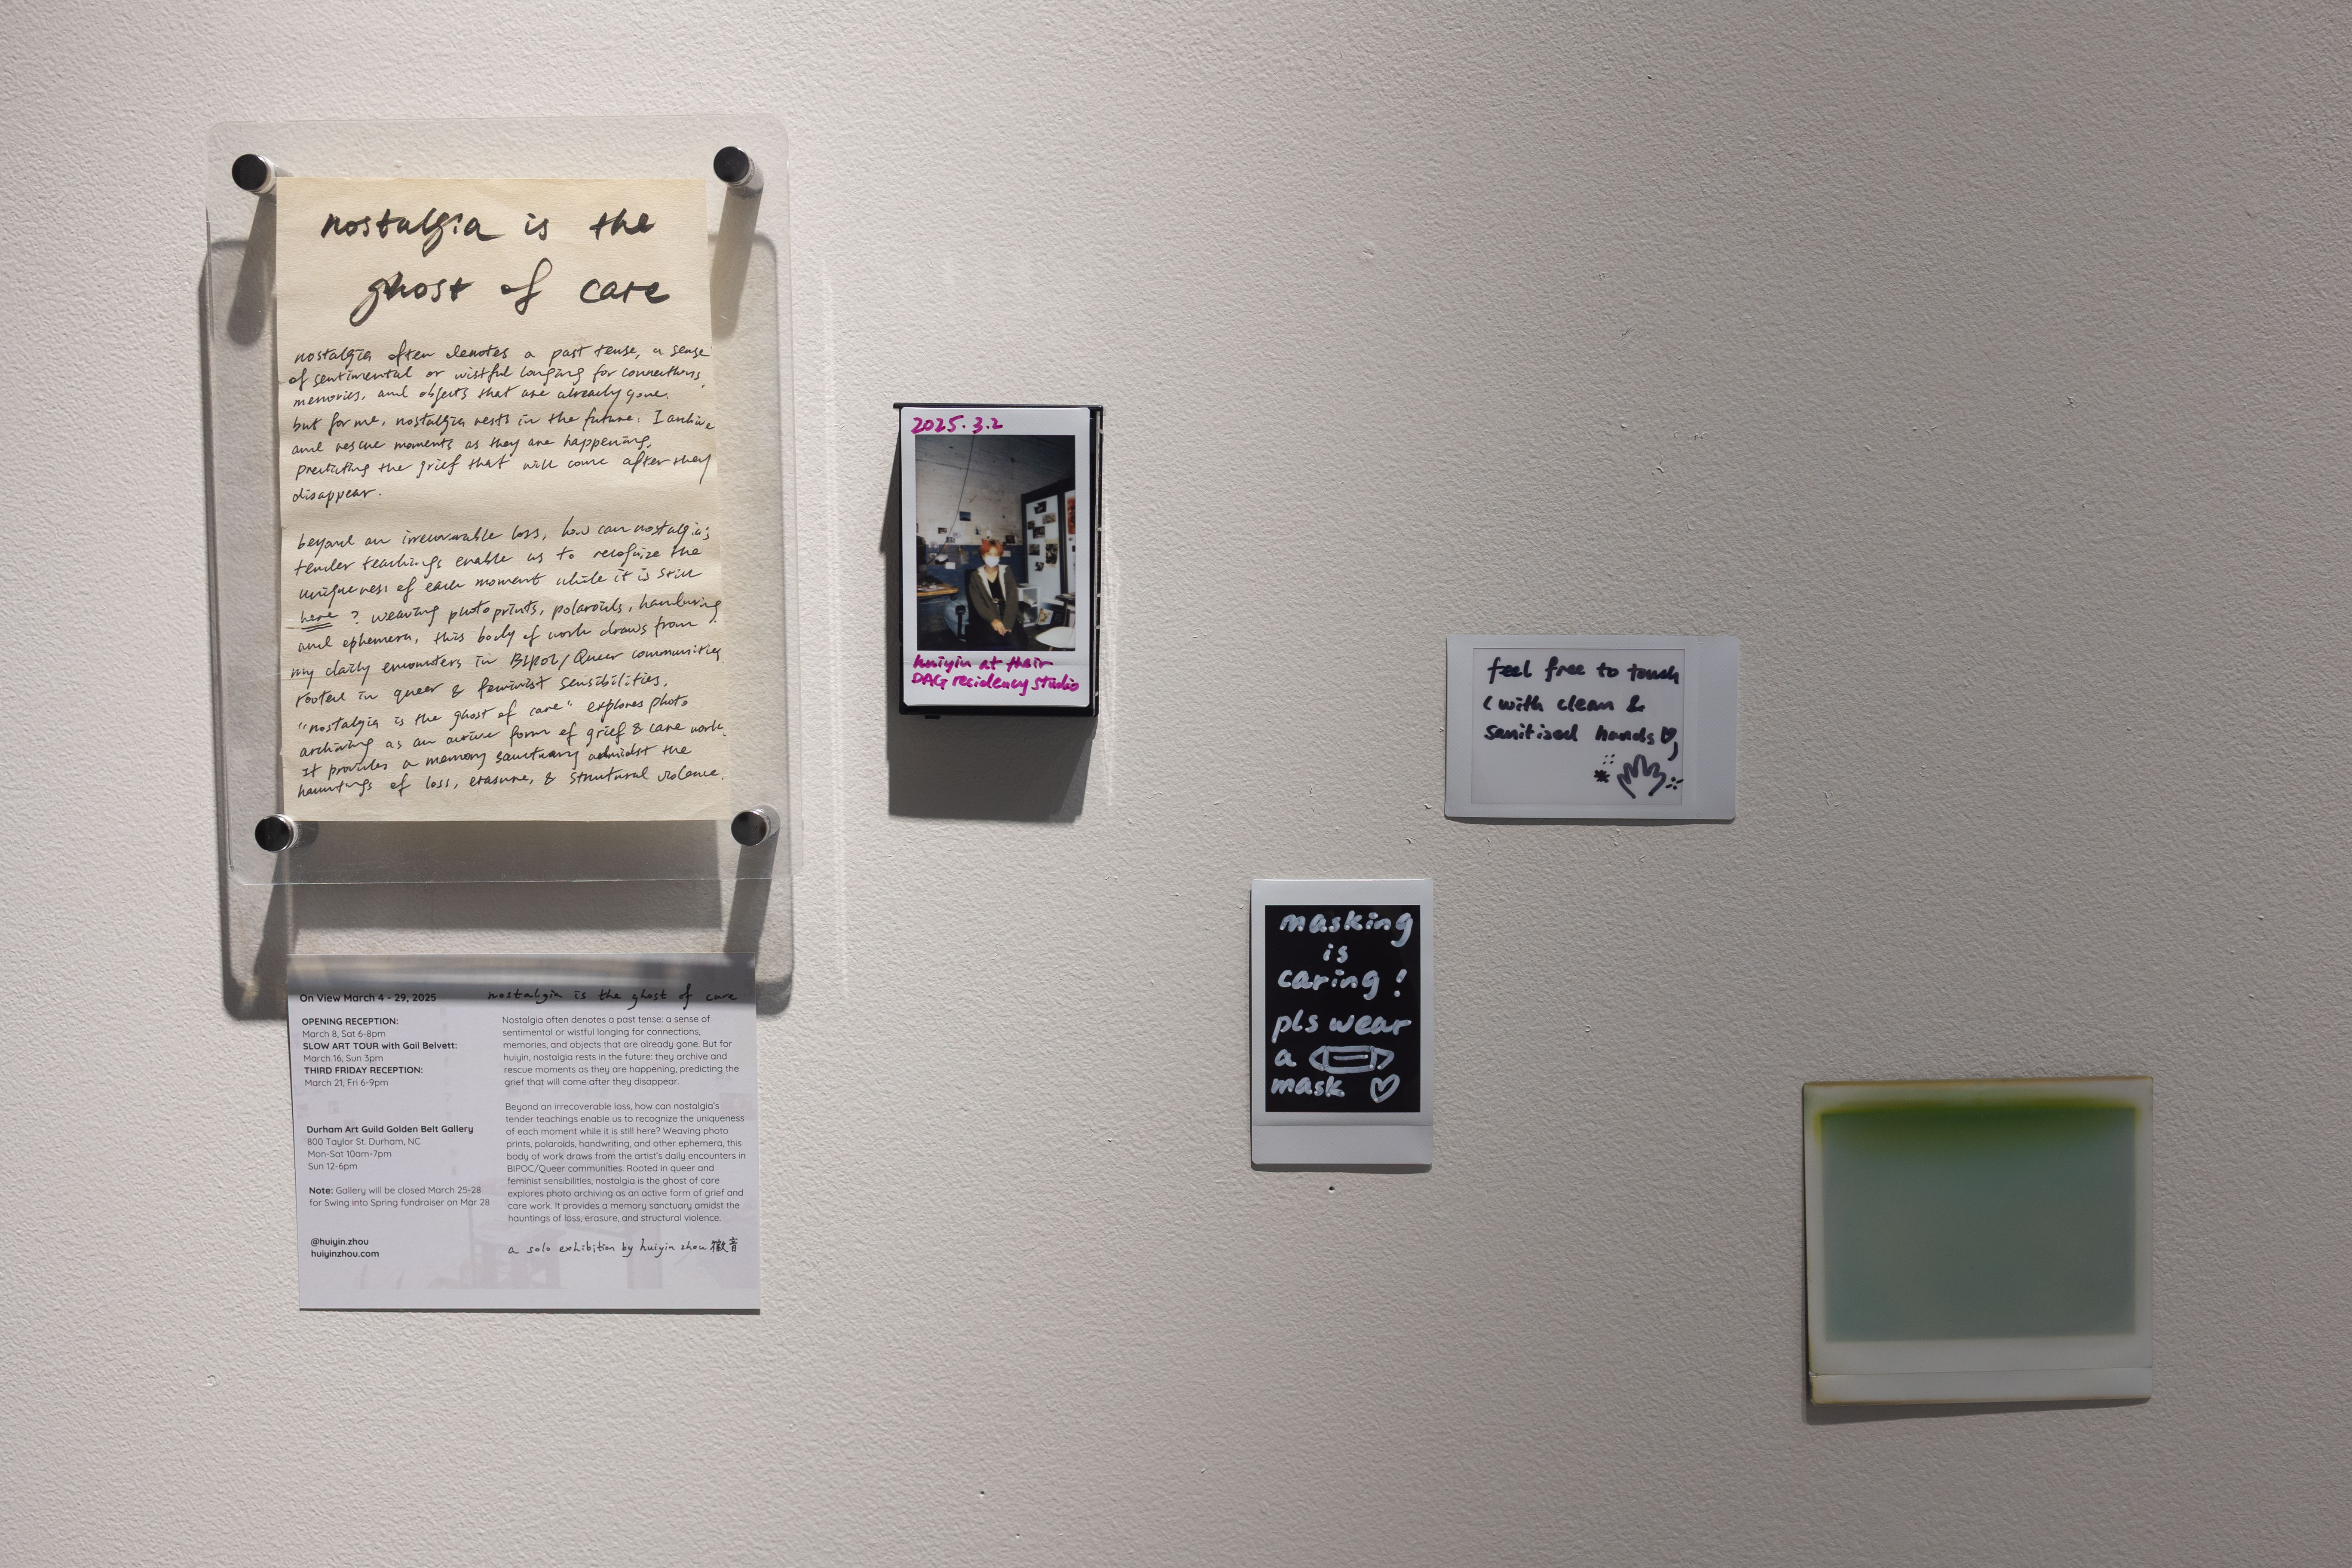 nostalgia is the
ghost of care
nostalgia often denotes a past tense, a sense
of sentimental or wistful longing for connections,
memories, and objects that are already gone.
but for me, nostalgia rests in the future: I archive
and rescue moments as they are happening,
predicting the grief that will come after they
disappear.
beyond an irrecoverable loss, how can nostalgia's
tender teachings enable us to recognize the
uniqueness of each moment while it is still
here? weaving photo prints, polaroids, handwriting
and ephemera, this body of work draws from
my daily encounters in BIPOC/Queer communities
rooted in queer & feminist sensibilities.
"nostalgia is the ghost of care" explores photo
archiving as an active form of grief & care work.
It provides a memory sanctuary admidst the
hauntings of loss, erasure, & structural violence.
On View March 4 - 29, 2025
OPENING RECEPTION:
March 8, Sat 6-8pm
SLOW ART TOUR with Gail Belvett:
March 16, Sun 3pm
THIRD FRIDAY RECEPTION:
March 21, Fri 6-9pm
Durham Art Guild Golden Belt Gallery
800 Taylor St. Durham, NC
Mon-Sat 10am-7pm
Sun 12-6pm
Note: Gallery will be closed March 25-28
for Swing into Spring fundraiser on Mar 28
@huiyin.zhou
huiyinzhou.com
nostalgia is the ghost of care
Nostalgia often denotes a past tense: a sense of
sentimental or wistful longing for connections,
memories, and objects that are already gone. But for
huiyin, nostalgia rests in the future: they archive and
rescue moments as they are happening, predicting the
grief that will come after they disappear.
Beyond an irrecoverable loss, how can nostalgia's
tender teachings enable us to recognize the uniqueness
of each moment while it is still here? Weaving photo
prints, polaroids, handwriting, and other ephemera, this
body of work draws from the artist's daily encounters in
BIPOC/Queer communities. Rooted in queer and
feminist sensibilities, nostalgia is the ghost of care
explores photo archiving as an active form of grief and
care work. It provides a memory sanctuary amidst the
hauntings of loss, erasure, and structural violence.
a solo exhibition by huiyin zhou 徽音
2025.3.2
huiyin at their
DAG residency studio
feel free to touch
(with clean &
sanitized hands♡)
masking
is
caring!
pls wear
a
mask ♡